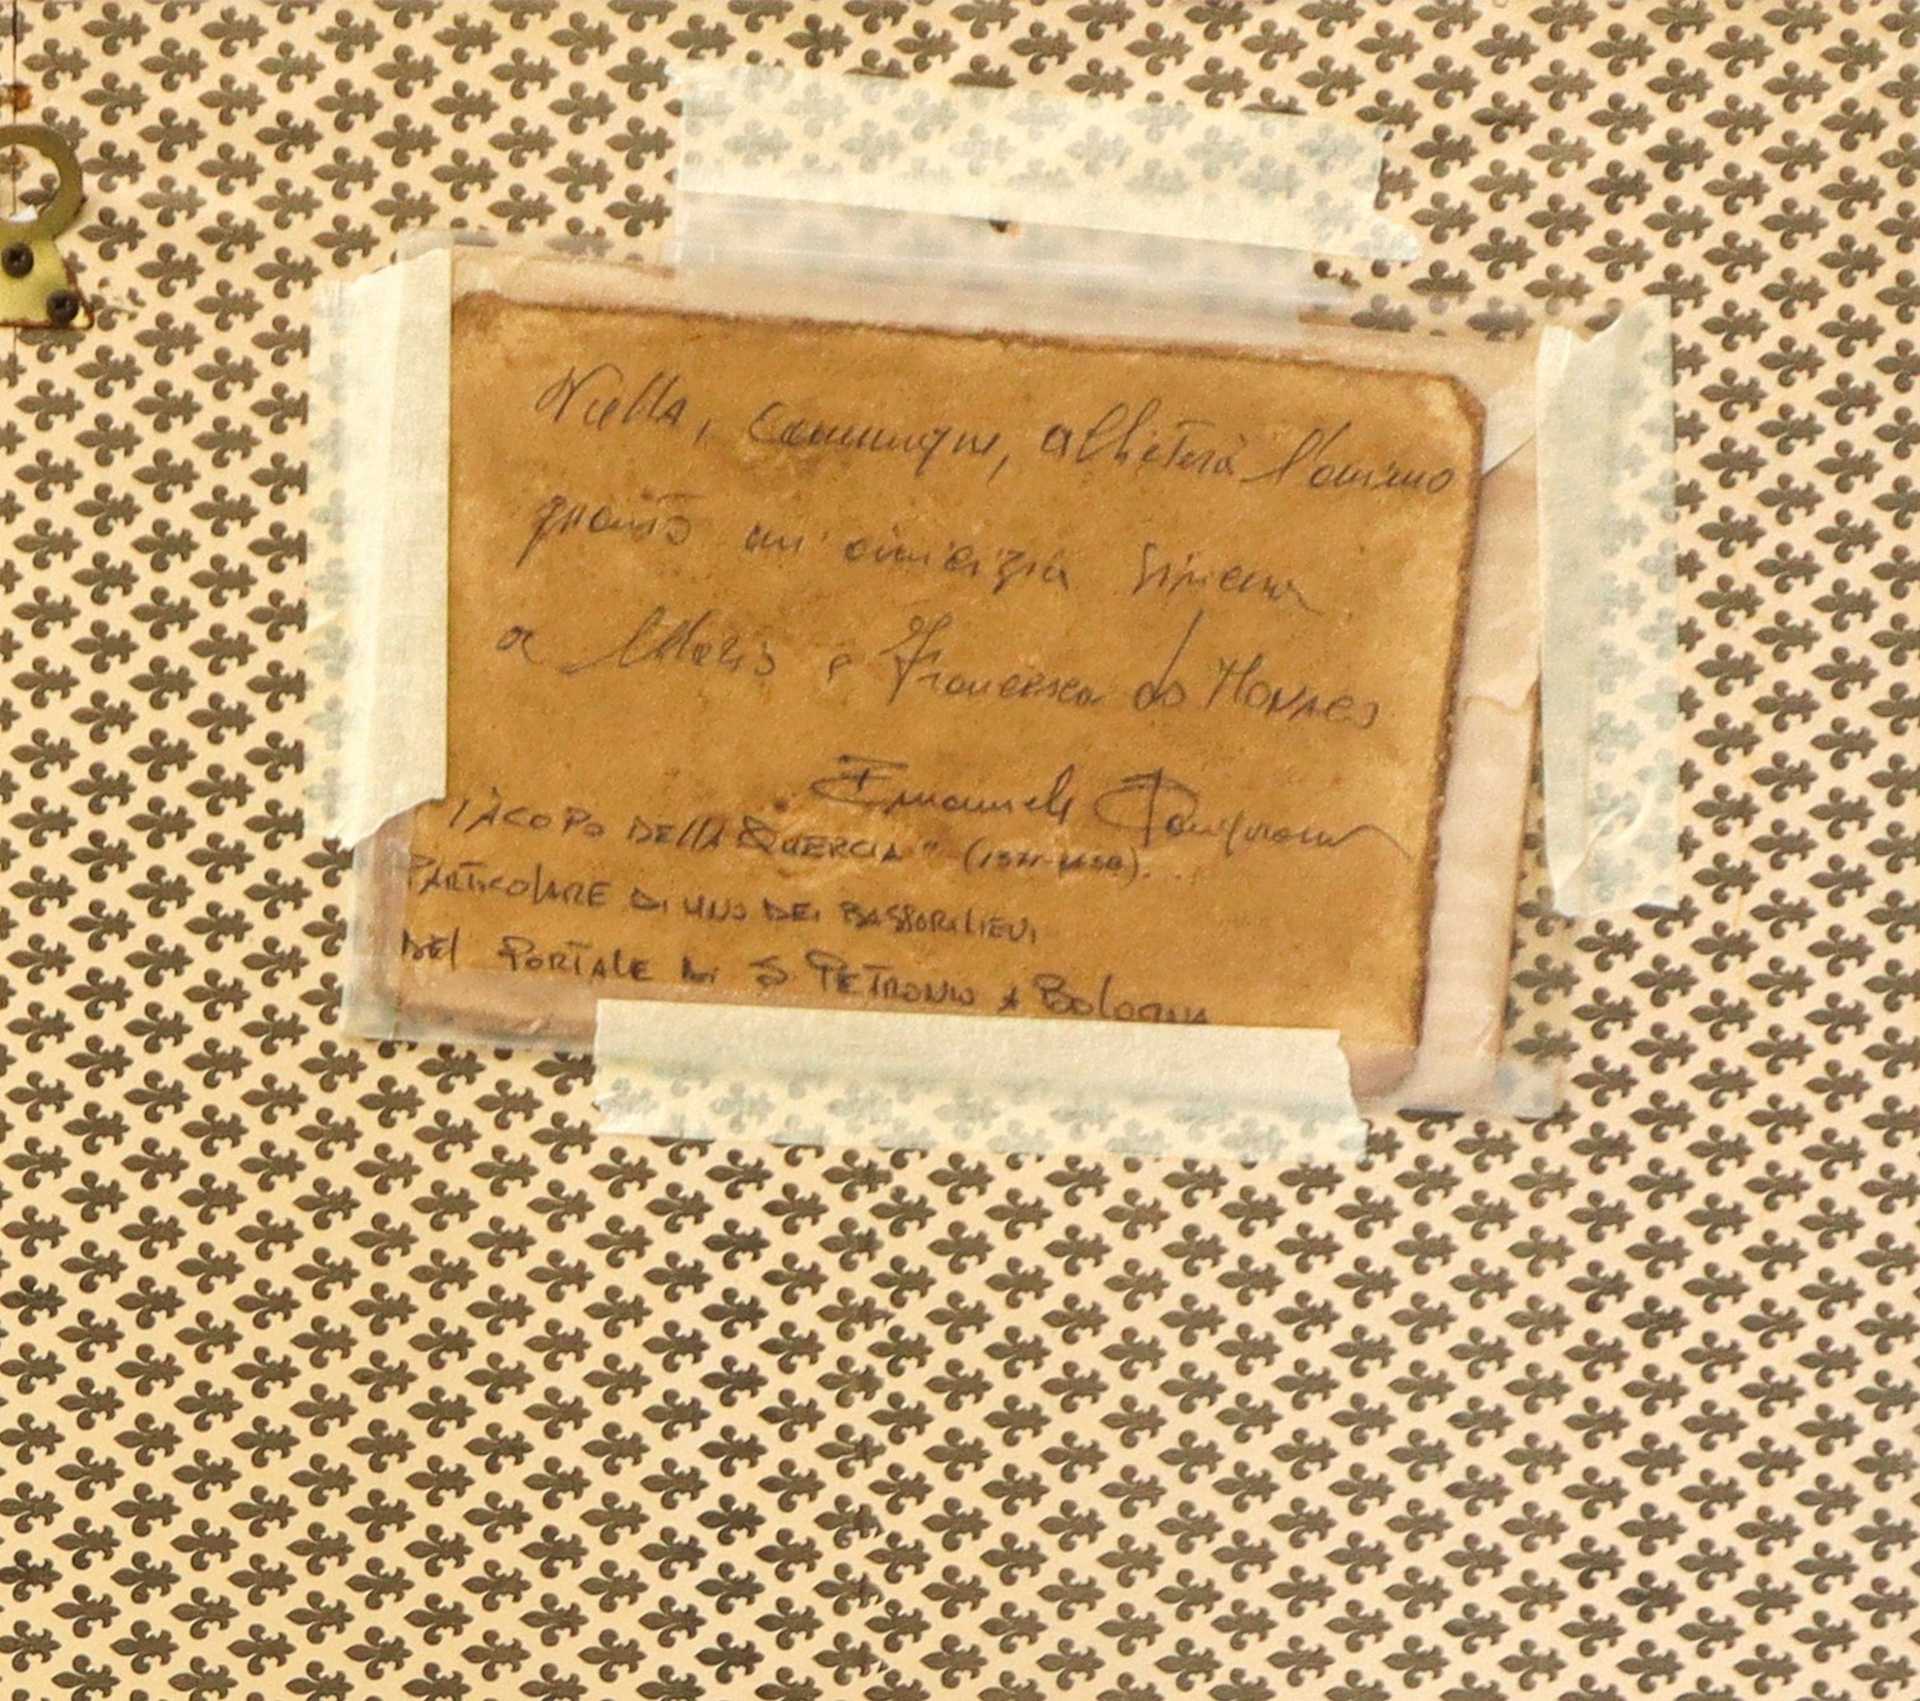 Nulla, comunque, allieterà l'animo
quanto un'amicizia sincera
a Mario e Francesca Lo Monaco
Emanuele
"JACOPO DELLA QUERCIA" (1371-1438)...
PARTICOLARE DI UNO DEI BASSORILIEVI
DEL PORTALE DI S. PETRONIO A BOLOGNA